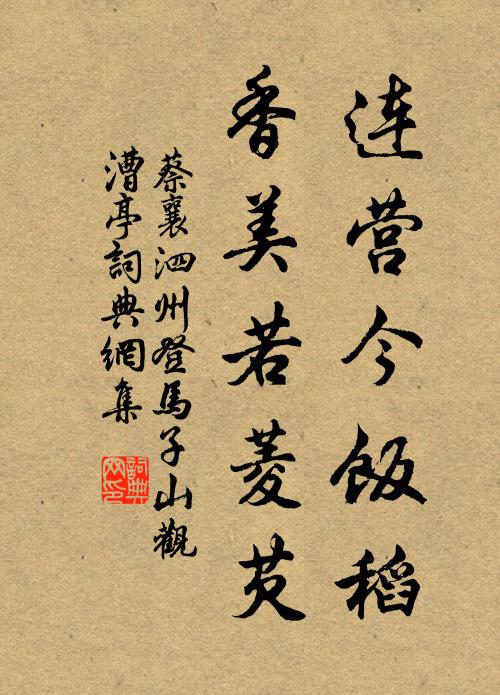 连营今饭稻
香美若菱芡
蔡襄泗州登馬子山觀
漕亭詞典網集
詞典网印